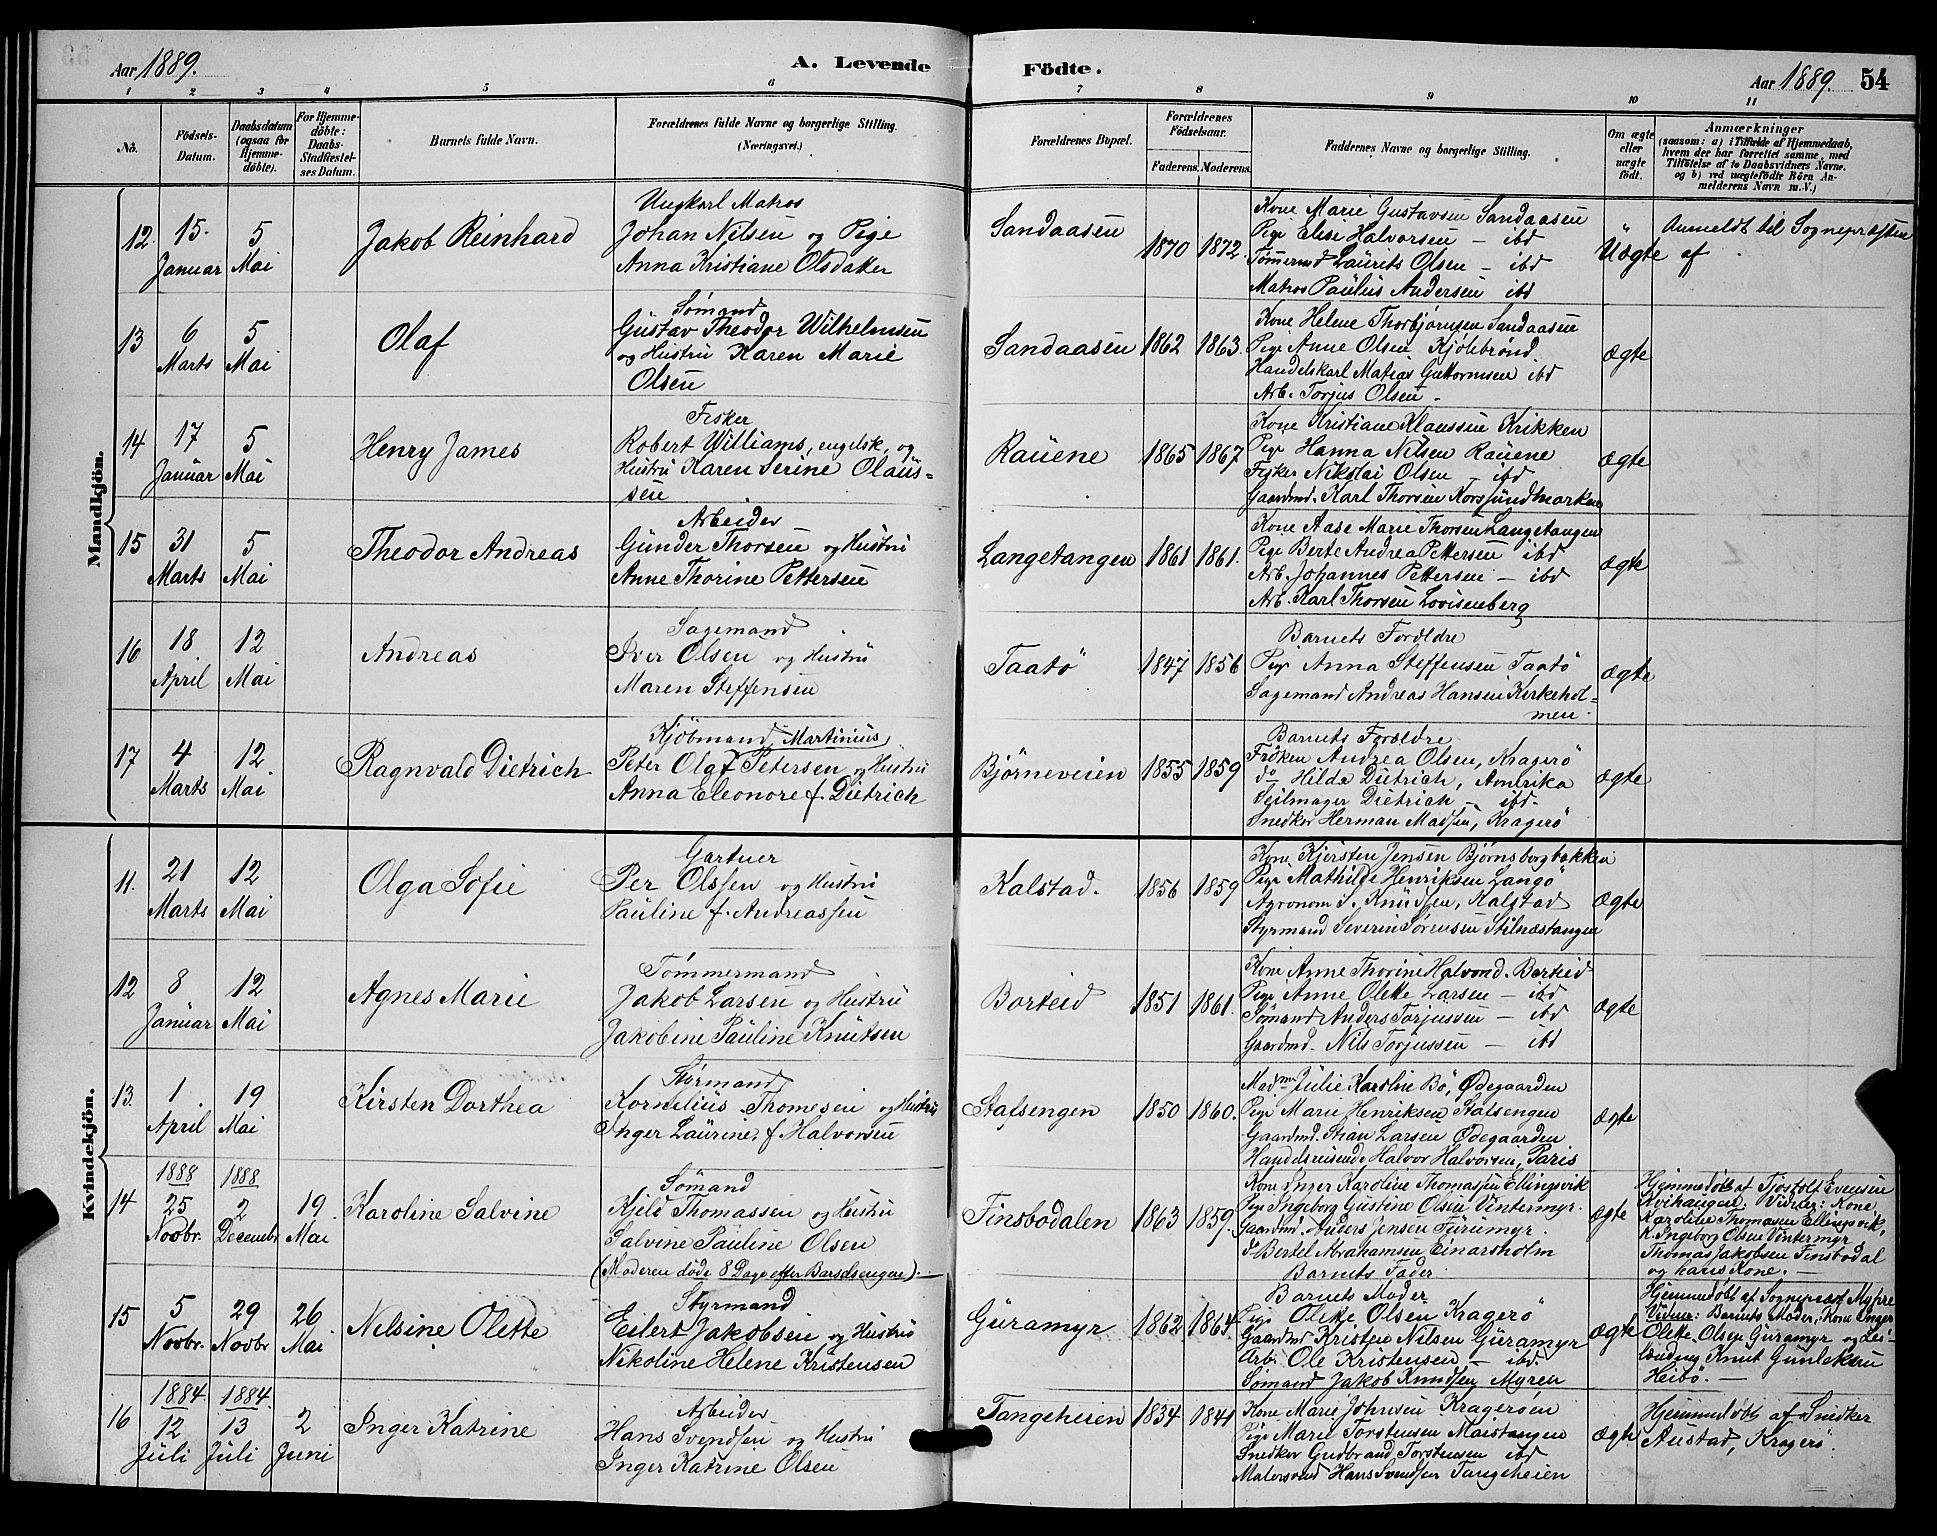 Aar 1889.
A. Levende Födte.
Aar 1889. 54
1 2 3 4 5 6 7 8 9 10 11
No. Födsels-Datum. Daabsdatum (ogsaa for Hjemmedöbte). For Hjemmedöbte: Daabs-Stadfæstelses Datum. Barnets fulde Navn. Forældrenes fulde Navne og borgerlige Stilling. (Næringsvei.) Forældrenes Bopæl. Forældrenes Födselsaar. Faderens. Moderens. Faddernes Navne og borgerlige Stilling. Om ægte eller uægte födt. Anmærkninger (saasom: a) i Tilfælde af Hjemmedaab, hvem der har forrettet samme, med Tilföielse af to Daabsvidners Navne, og b) ved uægtefödte Börn Anmelderens Navn m. V.)
Mandkjön.
12. 15. Januar 5 Mai Jakob Reinhard
Ungkarl Matros
Johan Nilsen og Pige
Anna Kristiane Olsdatter
Sandaasen 1870 1872.
Kone Marie Gustavsen Sandaasen
Pige Elise Halvorsen – ibd
Tømermd Laurits Olsen – ibd
Matros Paulus Andersen ibd
Uægte
Anmeldt til Sognepræsten
af
13 6 Marts 5 Mai Olaf
Sømand
Gustav Theodor Wilhelmsen
og Hustru Karen Marie
Olsen
Sandaasen 1862 1863.
Kone Helene Thorbjørnsen Sandaasen
Pige Anne Olsen Kjölebrönd.
Handelskarl Matias Guttormsen ibd
Arb. Torjus Olsen.
ægte
14 17 Januar 5 Mai Henry James
Fisker
Robert Williams, engelsk, og
Hustru Karen Serine Olaus-
sen
Rauene 1865 1867
Kone Kristiane Klaussen Krikken
Pige Hanna Nilsen Rauene
Fisker Nikolai Olsen – ibd
Gaardmd. Karl Thorsen Korssundmarken
ægte
15 31 Marts 5 Mai Theodor Andreas
Arbeider
Gunder Thorsen og Hustru
Anne Thorine Pettersen
Langetangen 1861 1861.
Kone Aase Marie Thorsen Langetangen
Pige Berte Andrea Pettersen ibd
Arb. Johannes Pettersen – ibd
Arb. Karl Thorsen Lovisenberg
ægte
16 18 April 12 Mai Andreas
Sagemand
Iver Olsen og Hustru
Maren Steffensen
Taatö 1847 1856
Barnets Forældre
Pige Anna Steffensen Taatö
Sagemand Andreas Hansen Kirkehol-
men.
ægte
17 4 Marts 12 Mai Ragnvald Dietrich
Kjöbmand Martinius
Peter Olaf Petersen og Hustru
Anna Eleonore f. Dietrich
Bjørneveien 1855 1859
Barnets Forældre
Fröken Andrea Olsen, Kragerö
do Hilda Dietrich, Amerika
Seilmager Dietrich – ibd.
Snedker Herman Madsen, Kragerö
ægte
Kvindekjön.
11. 21 Marts 12 Mai Olga Sofie
Gartner
Per Olssen og Hustru
Pauline f. Andreassen
Kalstad. 1856 1859
Kone Kjersten Jensen Bjørnsborgbakken
Pige Mathilde Henriksen Langö
Agronom S. Knudsen, Kalstad
Styrmand Severin Sørensen Stilnæstangen
ægte
12 8 Januar 12 Mai Agnes Marie
Tömmermand
Jakob Larsen og Hustru
Jakobine Pauline Knutsen
Borteid 1851 1861.
Kone Anne Thorine Halvorsd. Borteid
Pige Anne Olette Larsen – ibd
Sömand Anders Torjussen – ibd
Gaardmd. Nils Torjussen – ibd
ægte
13. 1. April 19 Mai Kirsten Dorthea
Styrmand
Kornelius Thomesen og Hustru
Inger Laurine f. Halvorsen
Stafsengen 1850 1860.
Madm Julie Karoline Bö, Ødegaarden
Pige Marie Henriksen Stafsengen
Gaardmd. Stian Larsen Ødegaarden
Handelsreisende Halvor Halvorsen, Paris
ægte
14 1888 25 Novbr. 1888 2 Decembr 19. Mai Karoline Salvine
Sömand
Kjeld Thomassen og Hustru
Salvine Pauline Olsen
(Moderen döde 8 Dage efter Barselsengen).
Finsbodalen 1863 1859.
Kone Inger Karoline Thomassen Ellingsvik
Pige Ingeborg Gustine Olsen Vintermyr.
Gaardmd. Anders Jensen Furumyr.
do Bertel Abrahamsen Einarsholm
Barnets Fader
ægte
Hjemmedöbt af Tjostolf Evensen
Kvihaugen. Vidner: Kone
Karoline Thomasen Ellingsvik,
K. Ingeborg Olsen Vintermyr
Thomas Jakobsen Finsbodal
og hans Kone. –
15 5 Novbr. 29 Novbr 26 Mai Nelsine Olette
Styrmand
Eilert Jakobsen og Hustru
Nikoline Helene Kristensen
Guramyr 1862 1864
Barnets Moder
Pige Olette Olsen Kragerö
Gaardmd Kristen Nilsen Guramyr
Arb. Ole Kristensen – ibd.
Sömand Jakob Knudsen Myren
ægte
Hjemmedöbt af Sognepræst Myhre
Vidner: Barnets Moder, Kone Inger
Olette Olsen Guramyr og Les-
lending Knut Gunleksen
Heibö. –
16 1884. 12 Juli 1884. 13 Juli 2 Juni Inger Katrine
Arbeider
Hans Svendsen og Hustru
Inger Katrine Olsen
Tangeheien 1834 1841
Kone Marie Johnsen Kragerøen
Pige Marie Torstensen Maistangen
Snedker Gudbrand Torstensen ibd
Malersvend Hans Svendsen Tangeheien
ægte
Hjemmedöbt af Snedker
Austad, Kragerö.